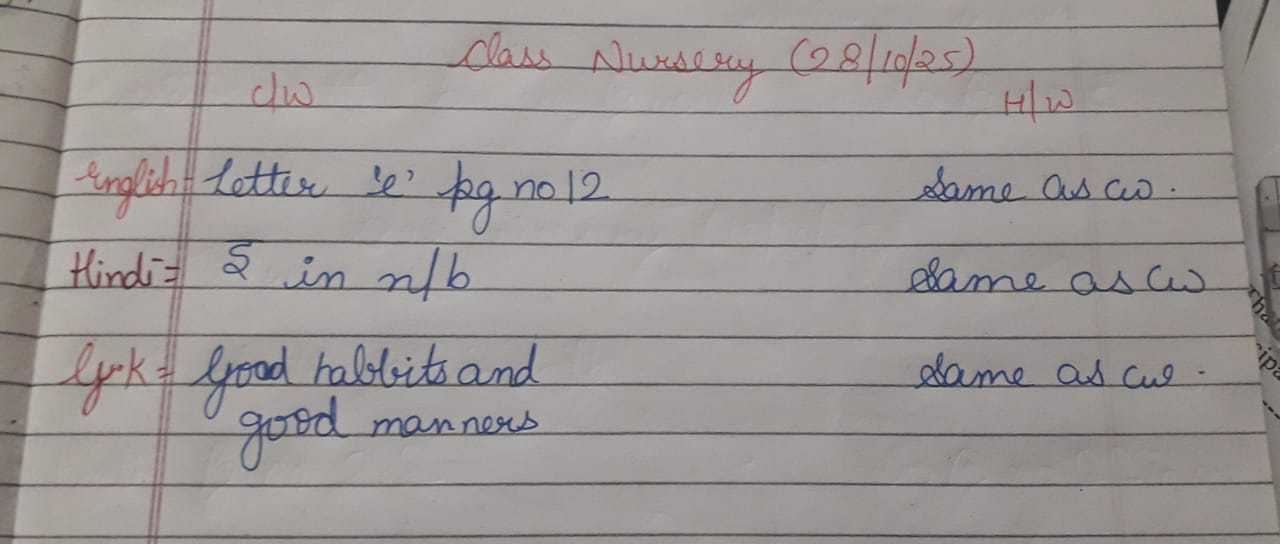 Class Nursery (28/10/25)
C/W H/W
English = Letter 'e' pg no 12 Same as cw.
Hindi = ड in n/b Same as cw
G.K = Good habbits and Same as cw.
good manners